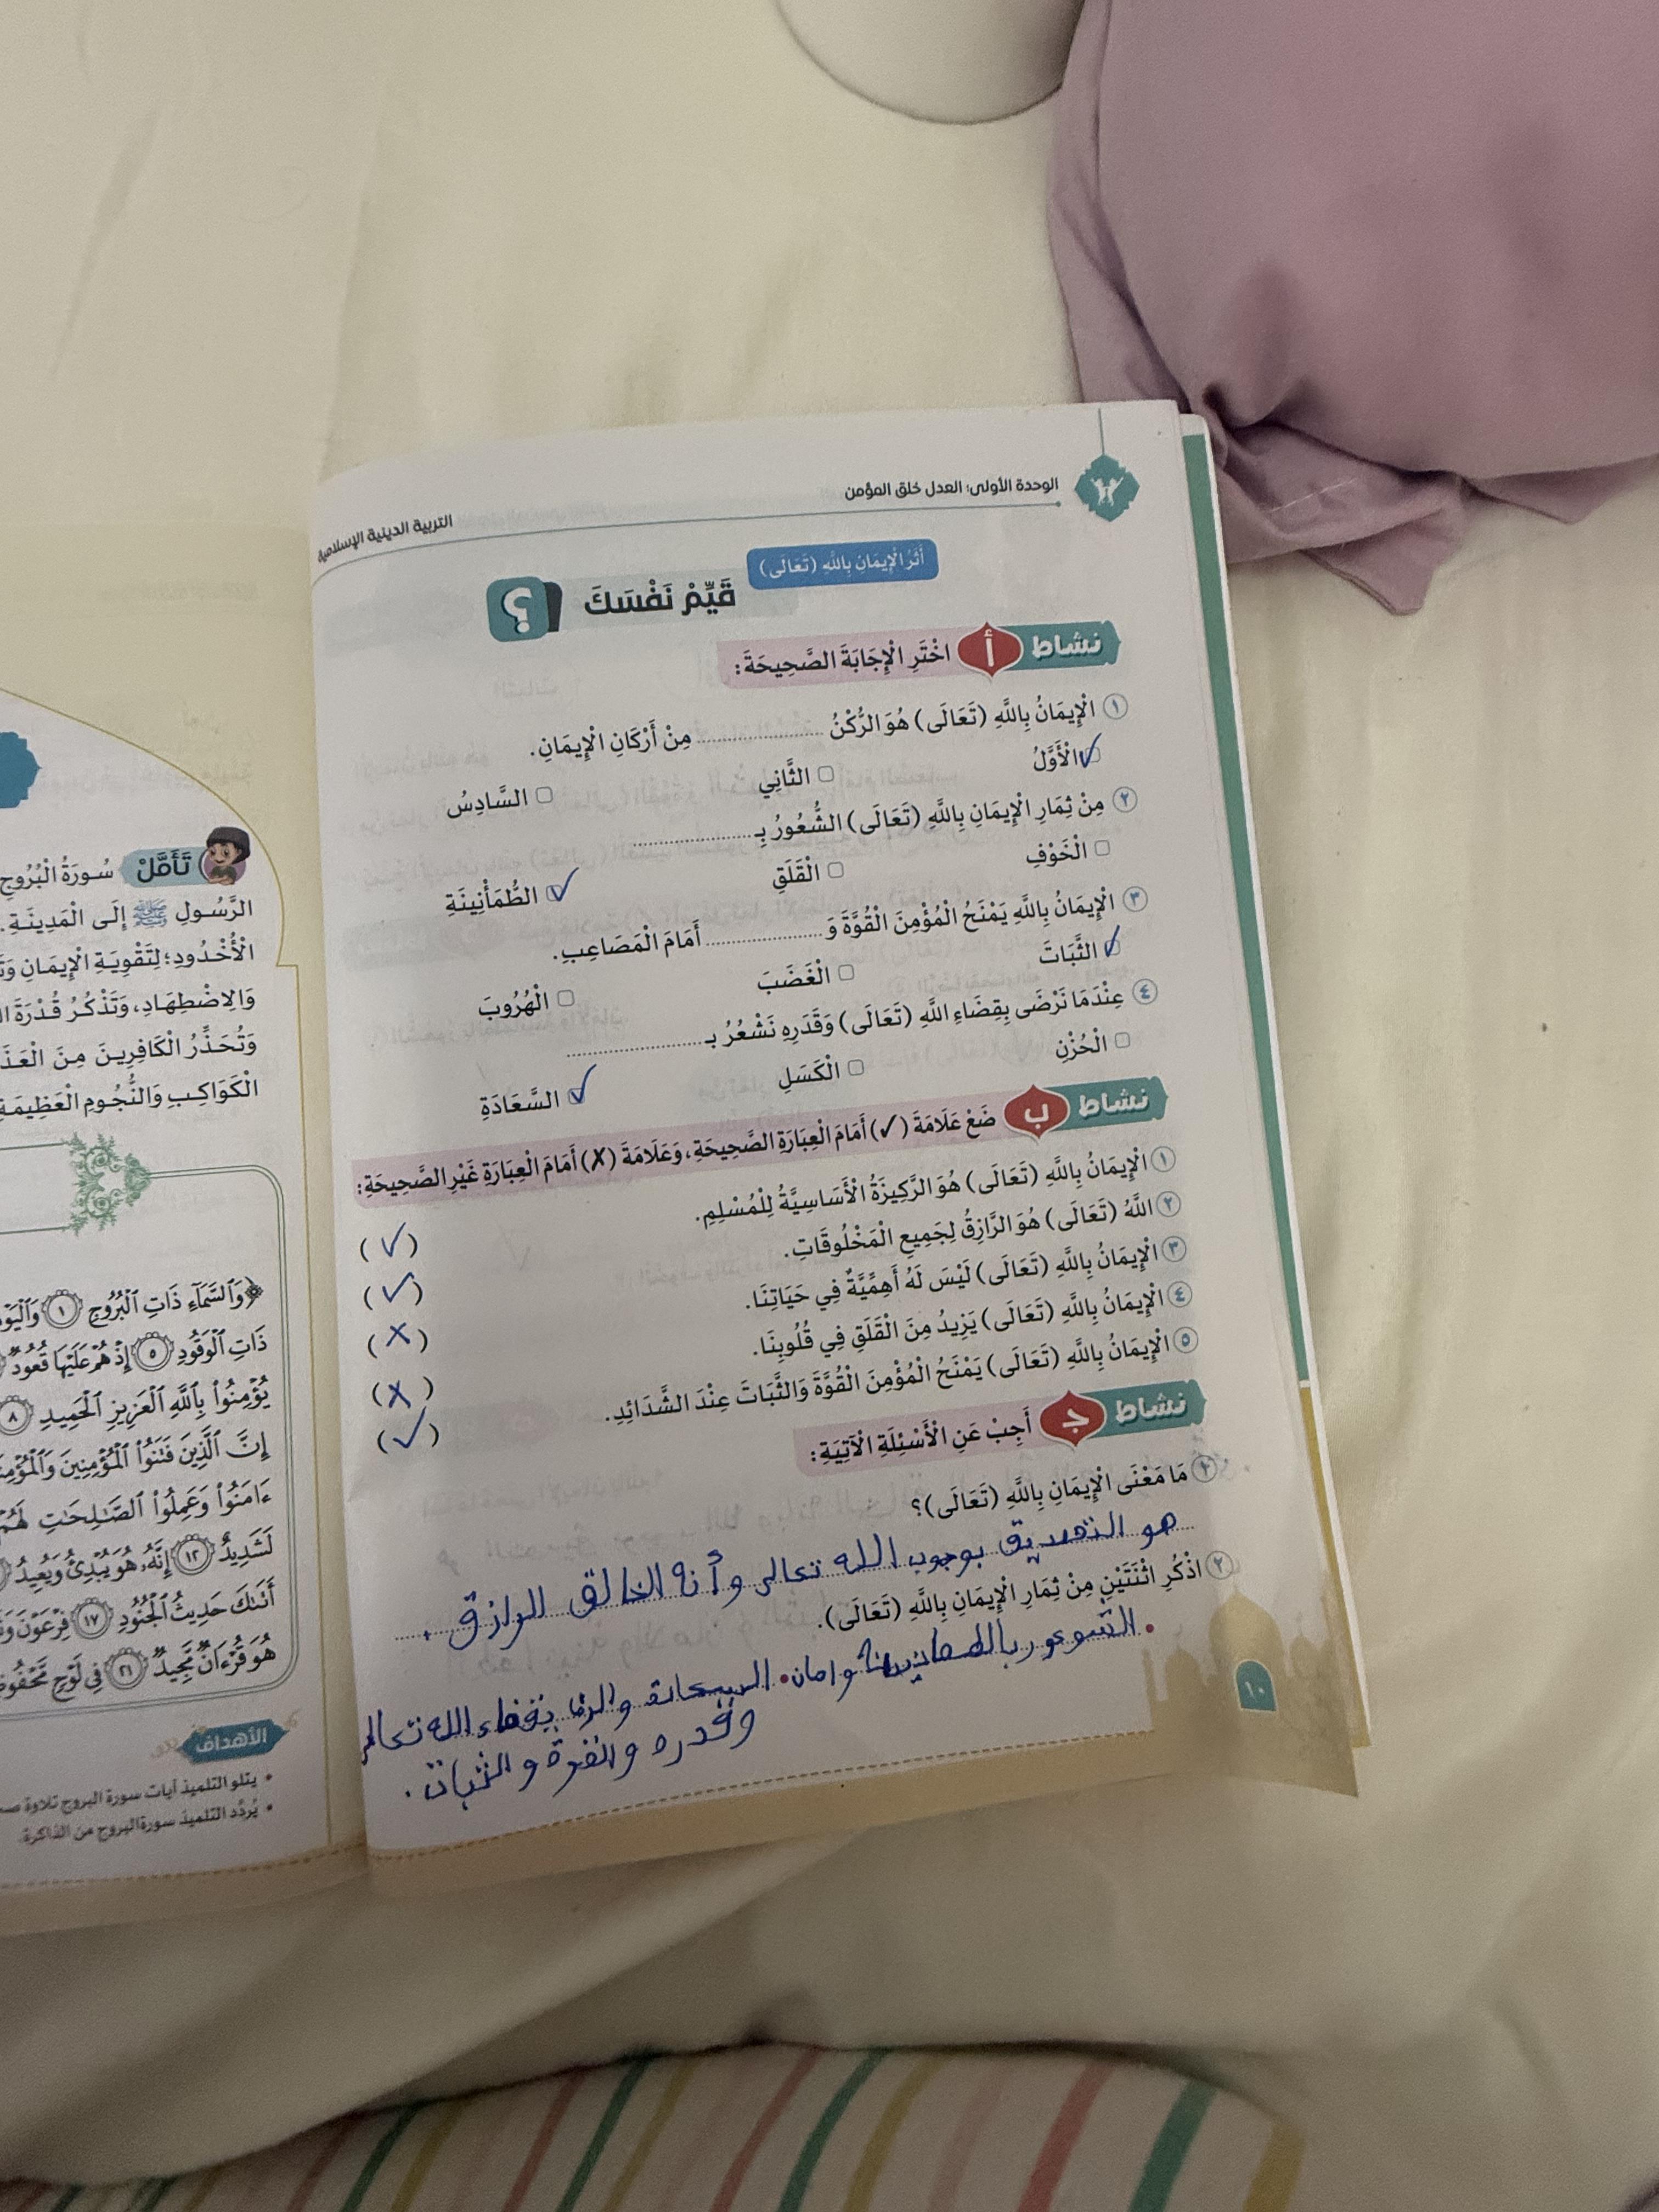 الوحدة الأولى: العدل خلق المؤمن
التربية الدينية الإسلامية
أَثَرُ الْإِيمَانِ بِاللَّهِ (تَعَالَى)
قَيِّمْ نَفْسَكَ ؟
نشاط أ اخْتَرِ الْإِجَابَةَ الصَّحِيحَةَ:
١ الْإِيمَانُ بِاللَّهِ (تَعَالَى) هُوَ الرُّكْنُ .................... مِنْ أَرْكَانِ الْإِيمَانِ.
✓ الْأَوَّلُ □ الثَّانِي □ السَّادِسُ
٢ مِنْ ثِمَارِ الْإِيمَانِ بِاللَّهِ (تَعَالَى) الشُّعُورُ بِـ ....................
□ الْخَوْفِ □ الْقَلَقِ ✓ الطُّمَأْنِينَةِ
٣ الْإِيمَانُ بِاللَّهِ يَمْنَحُ الْمُؤْمِنَ الْقُوَّةَ وَ .................... أَمَامَ الْمَصَاعِبِ.
✓ الثَّبَاتَ □ الْغَضَبَ □ الْهُرُوبَ
٤ عِنْدَمَا نَرْضَى بِقَضَاءِ اللَّهِ (تَعَالَى) وَقَدَرِهِ نَشْعُرُ بـ ....................
□ الْحُزْنِ □ الْكَسَلِ ✓ السَّعَادَةِ
نشاط ب ضَعْ عَلَامَةَ (✓) أَمَامَ الْعِبَارَةِ الصَّحِيحَةِ، وَعَلَامَةَ (✗) أَمَامَ الْعِبَارَةِ غَيْرِ الصَّحِيحَةِ:
١ الْإِيمَانُ بِاللَّهِ (تَعَالَى) هُوَ الرَّكِيزَةُ الْأَسَاسِيَّةُ لِلْمُسْلِمِ. (✓)
٢ اللَّهُ (تَعَالَى) هُوَ الرَّازِقُ لِجَمِيعِ الْمَخْلُوقَاتِ. (✓)
٣ الْإِيمَانُ بِاللَّهِ (تَعَالَى) لَيْسَ لَهُ أَهَمِّيَّةٌ فِي حَيَاتِنَا. (✗)
٤ الْإِيمَانُ بِاللَّهِ (تَعَالَى) يَزِيدُ مِنَ الْقَلَقِ فِي قُلُوبِنَا. (✗)
٥ الْإِيمَانُ بِاللَّهِ (تَعَالَى) يَمْنَحُ الْمُؤْمِنَ الْقُوَّةَ وَالثَّبَاتَ عِنْدَ الشَّدَائِدِ. (✓)
نشاط ج أَجِبْ عَنِ الْأَسْئِلَةِ الْآتِيَةِ:
١ مَا مَعْنَى الْإِيمَانِ بِاللَّهِ (تَعَالَى)؟
هو التصديق بوجوب الله تعالى وأنه الخالق الرازق.
٢ اذْكُرِ اثْنَتَيْنِ مِنْ ثِمَارِ الْإِيمَانِ بِاللَّهِ (تَعَالَى).
• الشعور بالطمانينة وامان • السعادة والرضا بقضاء الله تعالى
وقدره والقوة والثبات.
١٠
تَأَمَّلْ سُورَةُ الْبُرُوجِ
الرَّسُولِ ﷺ إِلَى الْمَدِينَةِ.
الْأُخْدُودِ؛ لِتَقْوِيَةِ الْإِيمَانِ
وَالِاضْطِهَادِ، وَتَذْكُرُ قُدْرَةَ
وَتُحَذِّرُ الْكَافِرِينَ مِنَ
الْكَوَاكِبِ وَالنُّجُومِ الْعَظِيمَةِ
﴿وَٱلسَّمَآءِ ذَاتِ ٱلْبُرُوجِ ١
ذَاتِ ٱلْوَقُودِ ٥ إِذْ هُمْ عَلَيْهَا قُعُودٌ
يُؤْمِنُوا۟ بِٱللَّهِ ٱلْعَزِيزِ ٱلْحَمِيدِ ٨
إِنَّ ٱلَّذِينَ فَتَنُوا۟ ٱلْمُؤْمِنِينَ
ءَامَنُوا۟ وَعَمِلُوا۟ ٱلصَّٰلِحَٰتِ لَهُمْ
لَشَدِيدٌ ١٢ إِنَّهُۥ هُوَ يُبْدِئُ وَيُعِيدُ
أَتَىٰكَ حَدِيثُ ٱلْجُنُودِ ١٧ فِرْعَوْنَ
هُوَ قُرْءَانٌ مَّجِيدٌ ٢١ فِى لَوْحٍ مَّحْفُوظٍ
الأهداف
• يتلو التلميذ آيات سورة البروج تلاوة
• يُردِّد التلميذ سورة البروج من الذاكرة.